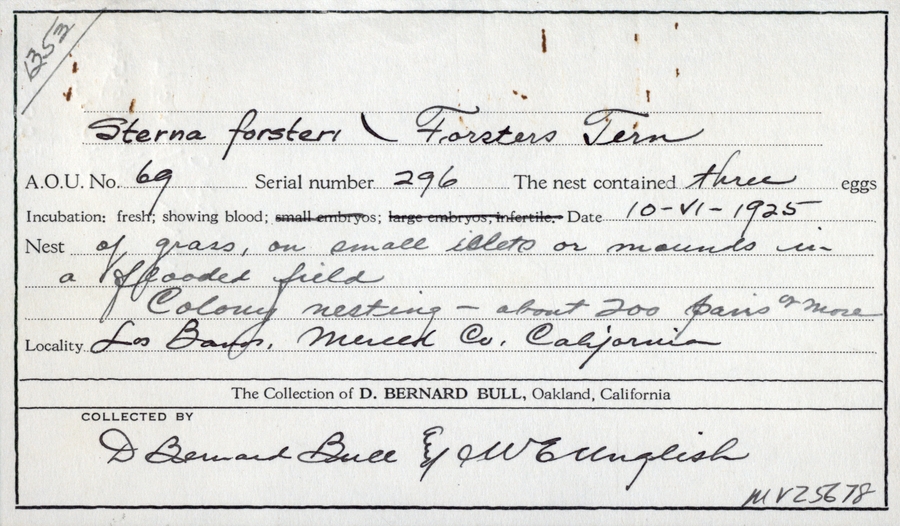 6353
Sterna forsteri \ Forsters Tern
A.O.U. No. 69 Serial number 296 The nest contained three eggs
Incubation: fresh; showing blood; small embryos; large embryos; infertile. Date 10-VI-1925
Nest of grass, on small islets or mounds in
a flooded field
Colony nesting - about 200 pairs or more
Locality Los Banos, Merced Co. California
The Collection of D. BERNARD BULL, Oakland, California
COLLECTED BY
D Bernard Bull & W E Unglish
MVZ5678